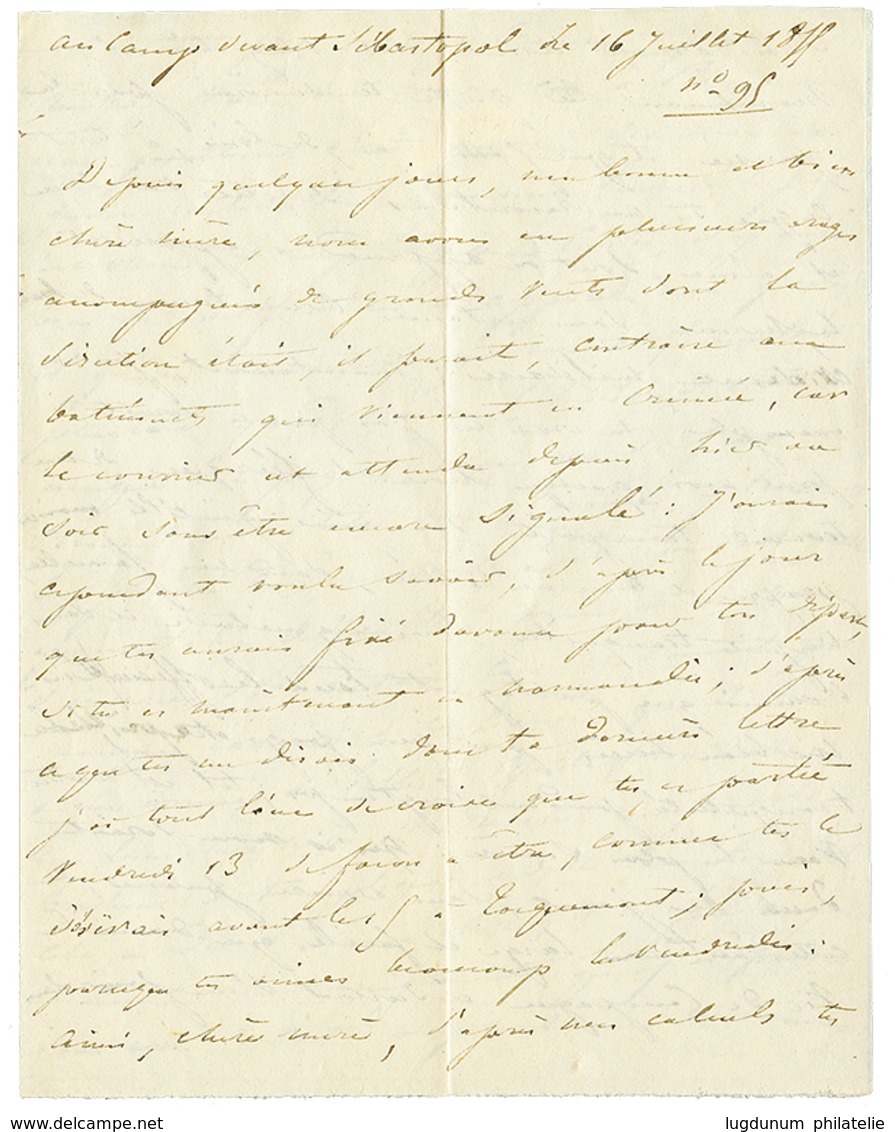 au Camp devant Sébastopol Le 16 Juillet 1855
n° 95
Depuis quelques jours, ma bonne et bien
chère mère, nous avons eu plusieurs orages
accompagnés de grands vents dont la
direction était, il parait, contraire aux
batiments qui viennent en Crimée, car
le courrier est attendu depuis hier au
soir sans être encore signalé : J'aurais
cependant voulu savoir, d'après le jour
que tu aurais fixé d'avance pour ton départ,
si tu es maintenant en normandie ; d'après
ce que tu me disais dans ta dernière lettre
j'ai tout lieu de croire que tu es partie
Vendredi 13 de façon à être, comme tu le
désirais avant les à Tocquemont ; puis,
parceque tu aimes beaucoup les Vendredis :
Ainsi, chère mère, d'après mes calculs tu
www.delcampe.net
lugdunum philatelie